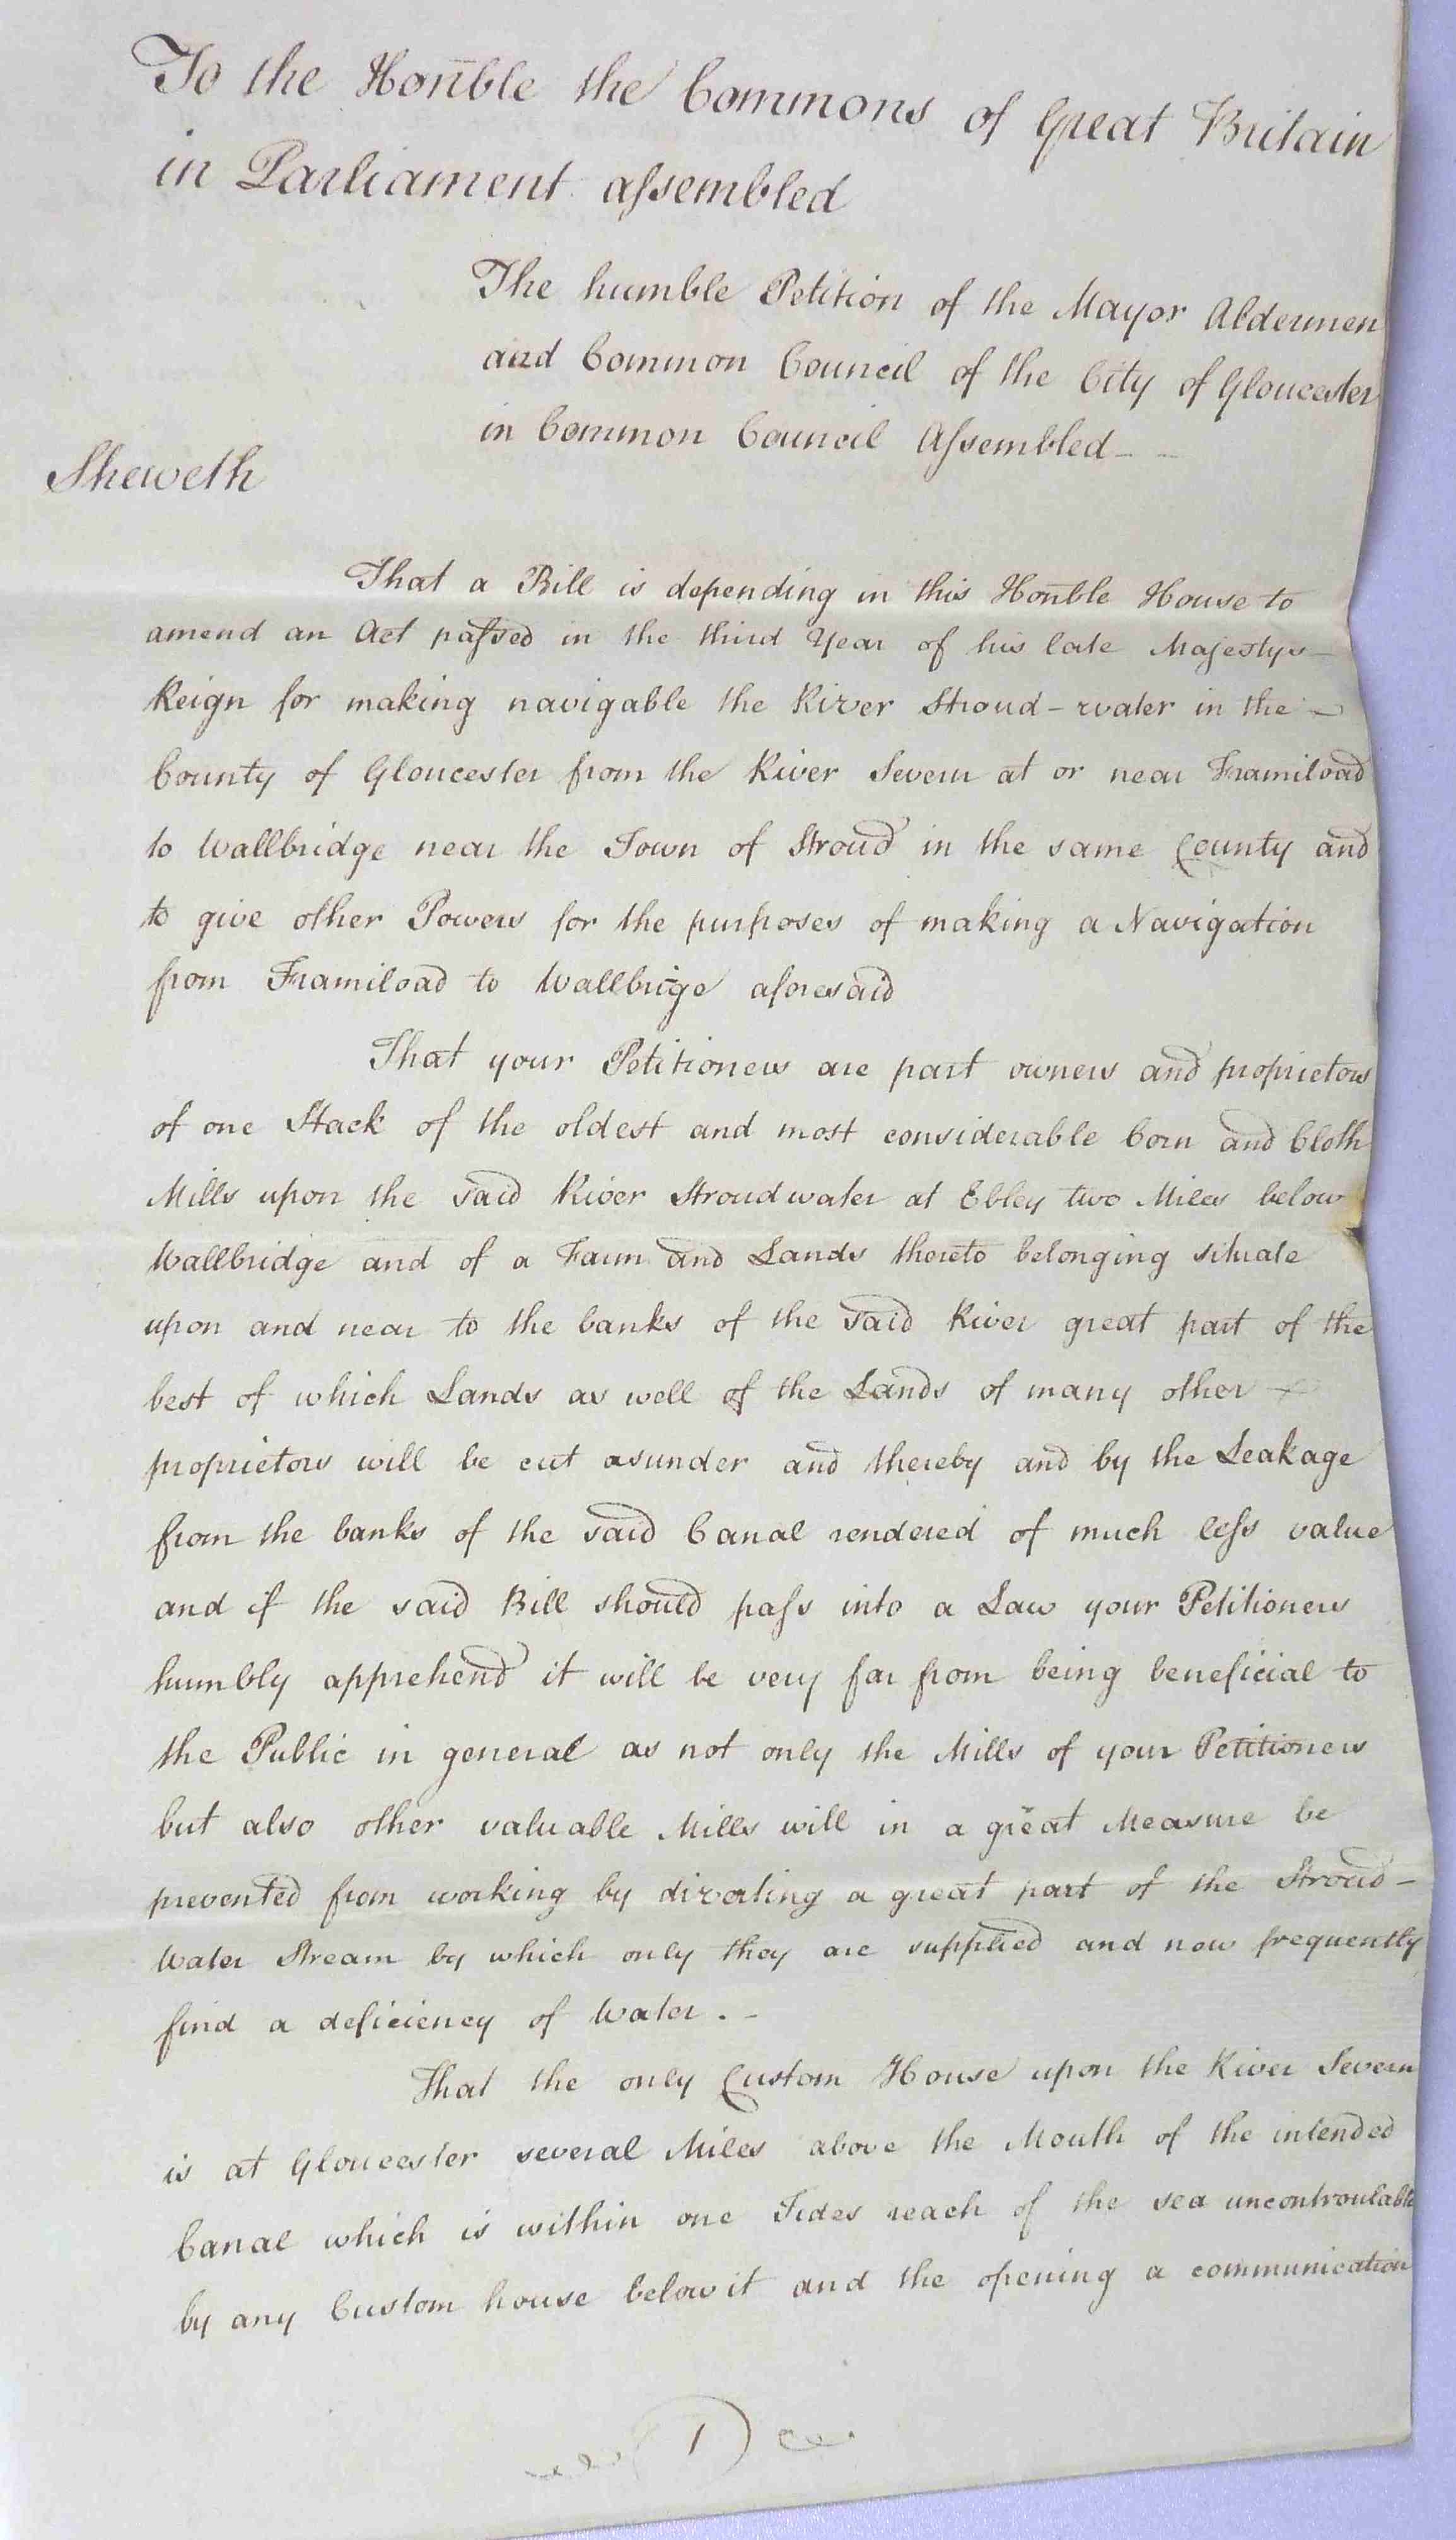 To the Hon̄ble the Commons of Great Britain
in Parliament assembled
The humble Petition of the Mayor Aldermen
and Common Council of the City of Gloucester
in Common Council Assembled - -
Sheweth
That a Bill is depending in this Hon̄ble House to
amend an Act passed in the third Year of his late Majestys -
Reign for making navigable the River Stroud-water in the -
County of Gloucester from the River Severn at or near Framiload
to Wallbridge near the Town of Stroud in the same County and
to give other Powers for the purposes of making a Navigation
from Framiload to Wallbrige aforesaid
That your Petitioners are part owners and proprietors
of one Stack of the oldest and most considerable Corn and Cloth
Mills upon the said River Stroudwater at Ebley two Miles below
Wallbridge and of a Farm and Lands thereto belonging situate
upon and near to the banks of the said River great part of the
best of which Lands as well of the Lands of many other
proprietors will be cut asunder and thereby and by the Leakage
from the banks of the said Canal rendered of much less value
and if the said Bill should pass into a Law your Petitioners
humbly apprehend it will be very far from being beneficial to
the Public in general as not only the Mills of your Petitioners
but also other valuable Mills will in a great Measure be
prevented from working by diverting a great part of the Stroud-
Water Stream by which only they are supplied and now frequently
find a deficiency of Water. -
That the only Custom House upon the River Severn
is at Gloucester several Miles above the Mouth of the intended
Canal which is within one Tides reach of the sea uncontroulable
by any Custom house below it and the opening a communication
1